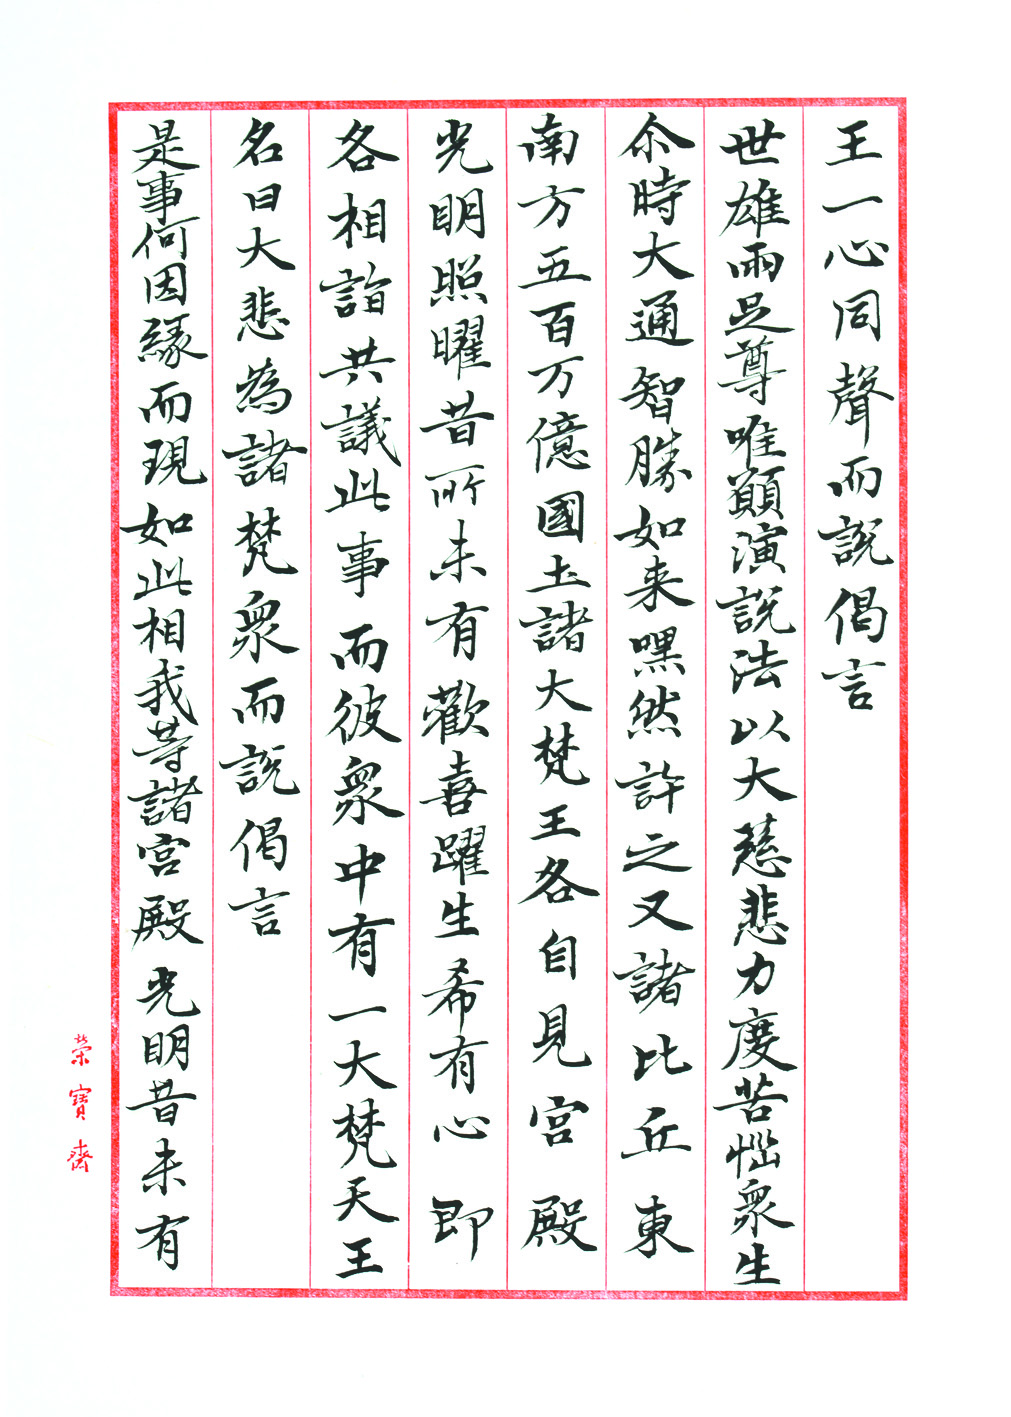 王一心同聲而說偈言
世雄兩足尊唯願演說法以大慈悲力度苦惱眾生
尒時大通智勝如来嘿然許之又諸比丘東
南方五百万億國土諸大梵王各自見宮殿
光明照曜昔所未有歡喜躍生希有心即
各相詣共議此事而彼眾中有一大梵天王
名曰大悲為諸梵眾而說偈言
是事何因緣而現如此相我等諸宮殿光明昔未有
榮寶齋